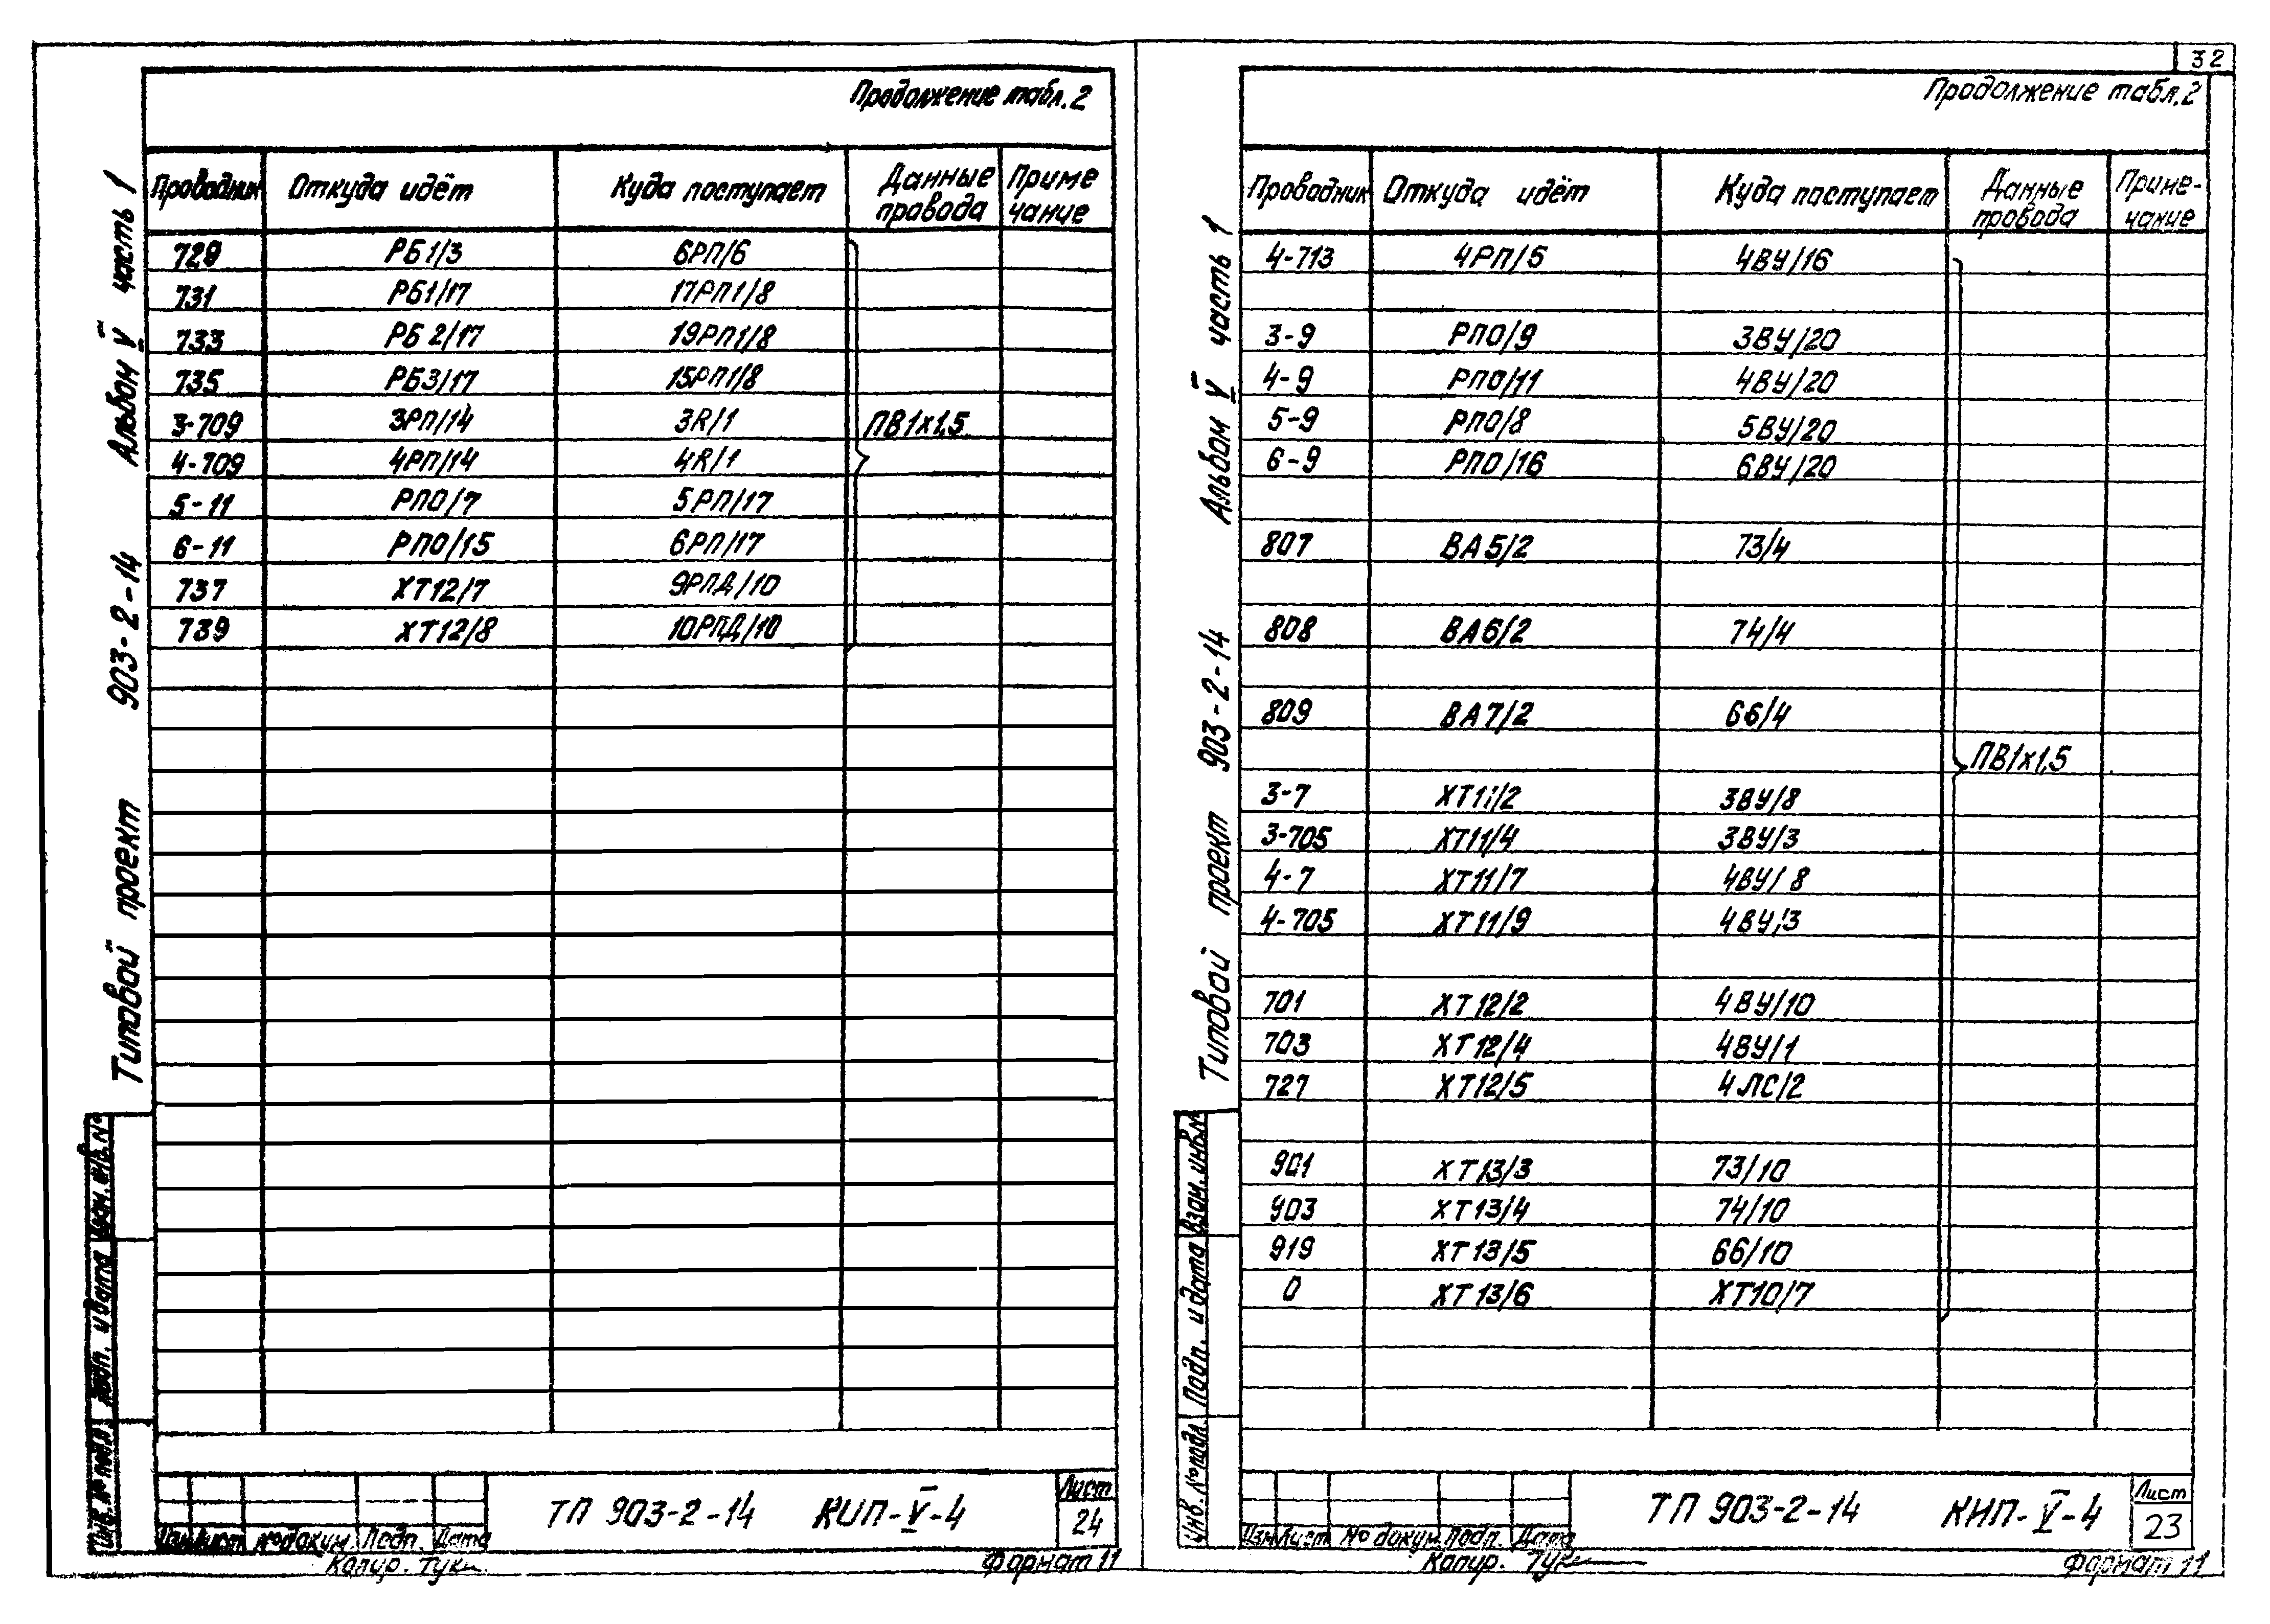 Продолжение табл.2
Проводник Откуда идёт Куда поступает Данные провода Приме чание
729 РБ1/3 6РП/6
731 РБ1/17 17РП1/8
733 РБ2/17 19РП1/8
735 РБ3/17 15РП1/8
3-709 3РП/14 3R/1 ПВ1х1,5
4-709 4РП/14 4R/1
5-11 РПО/7 5РП/17
6-11 РПО/15 6РП/17
737 ХТ12/7 9РПД/10
739 ХТ12/8 10РПД/10
Типовой проект 903-2-14 Альбом V часть 1
Взам. инв. №
Подп. и дата
Инв. № подл.
Изм Лист № докум. Подп. Дата
ТП 903-2-14 КИП-V-4
Лист
24
Копир. Формат 11
32
Продолжение табл.2
Проводник Откуда идёт Куда поступает Данные провода Приме- чание
4-713 4РП/5 4ВУ/16
3-9 РПО/9 3ВУ/20
4-9 РПО/11 4ВУ/20
5-9 РПО/8 5ВУ/20
6-9 РПО/16 6ВУ/20
807 ВА5/2 73/4
808 ВА6/2 74/4
809 ВА7/2 66/4
ПВ1х1,5
3-7 ХТ11/2 3ВУ/8
3-705 ХТ11/4 3ВУ/3
4-7 ХТ11/7 4ВУ/8
4-705 ХТ11/9 4ВУ/3
701 ХТ12/2 4ВУ/10
703 ХТ12/4 4ВУ/1
727 ХТ12/5 4ЛС/2
901 ХТ13/3 73/10
903 ХТ13/4 74/10
919 ХТ13/5 66/10
0 ХТ13/6 ХТ10/7
Типовой проект 903-2-14 Альбом V часть 1
Взам. инв. №
Подп. и дата
Инв. № подл.
Изм Лист № докум. Подп. Дата
ТП 903-2-14 КИП-V-4
Лист
23
Копир. Формат 11